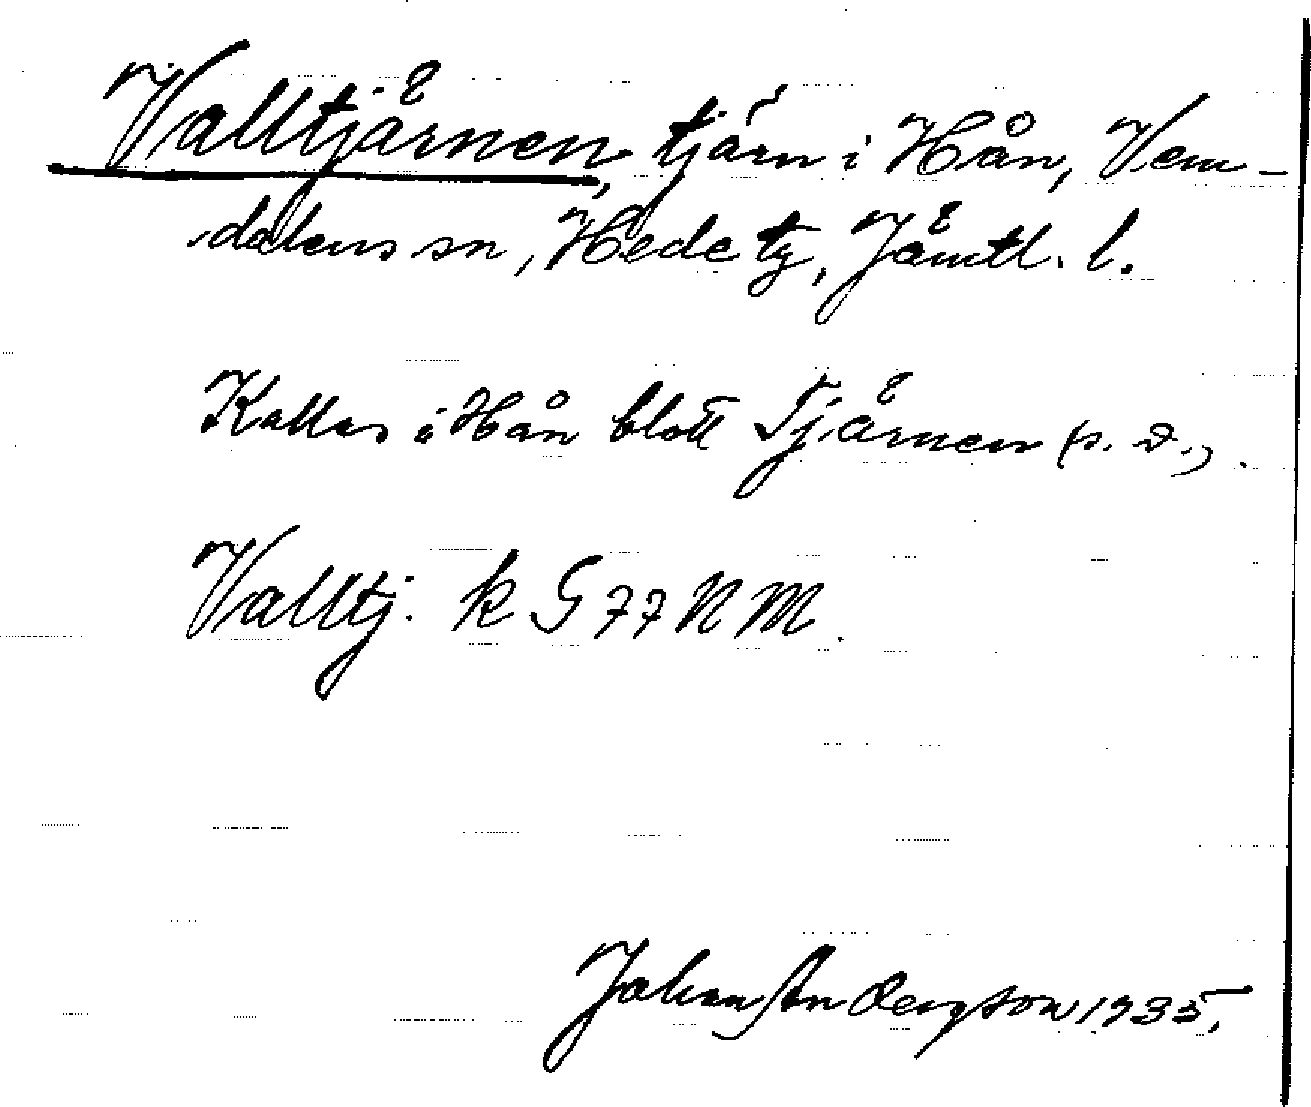 Valltjärnen, tjärn i Hån, Vem-
dalens sn, Hede tg, Jämtl. l.
Kallas i Hån blott Tjärnen (s. d.).
Valltj. k G 77 N M.
Johan Anderson 1935.